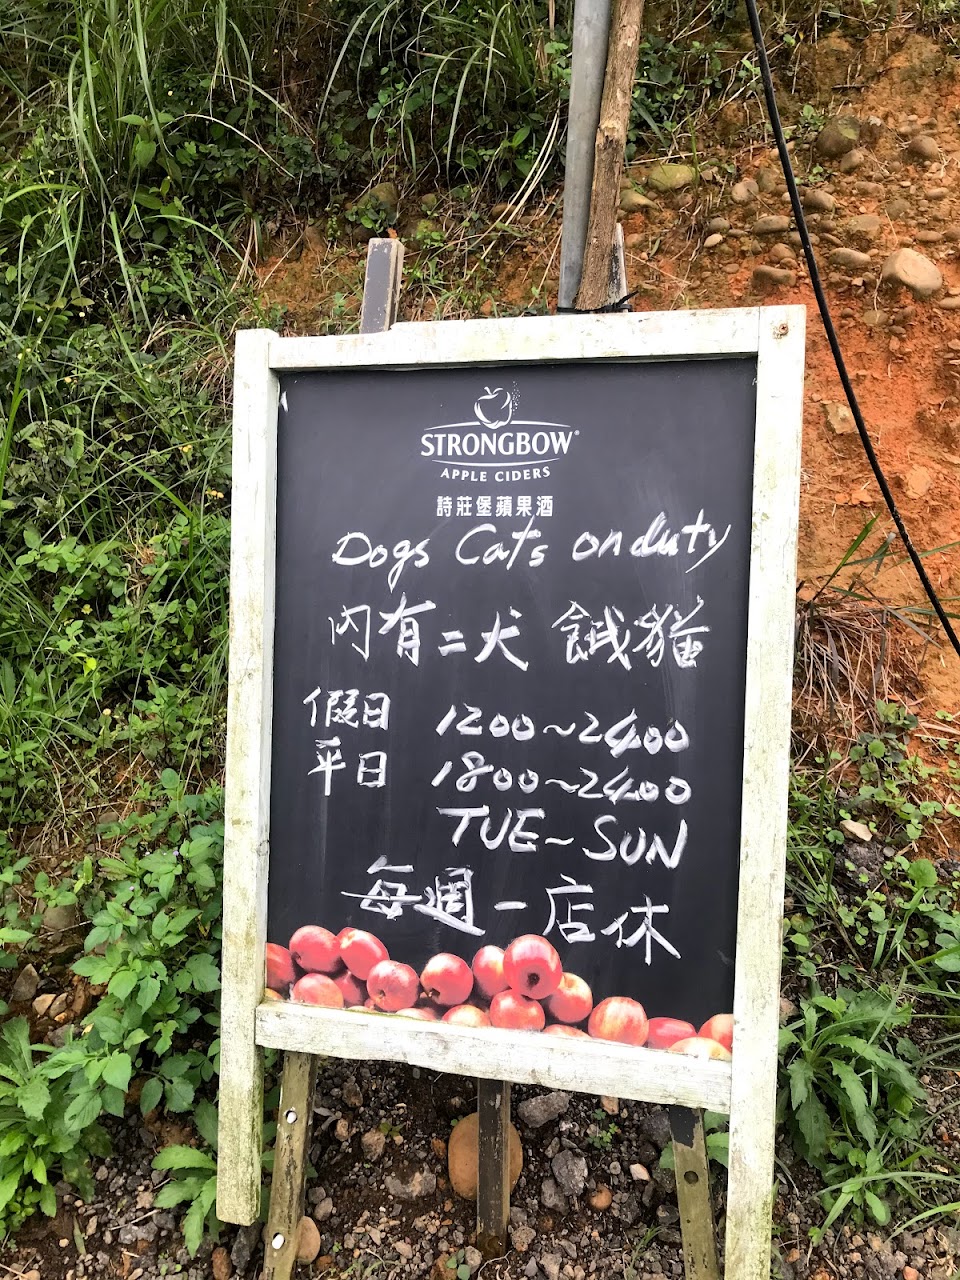 STRONGBOW®
APPLE CIDERS
詩莊堡蘋果酒
Dogs Cats on duty
內有二犬 餓猫
假日 1200~2400
平日 1800~2400
TUE~SUN
每週一店休